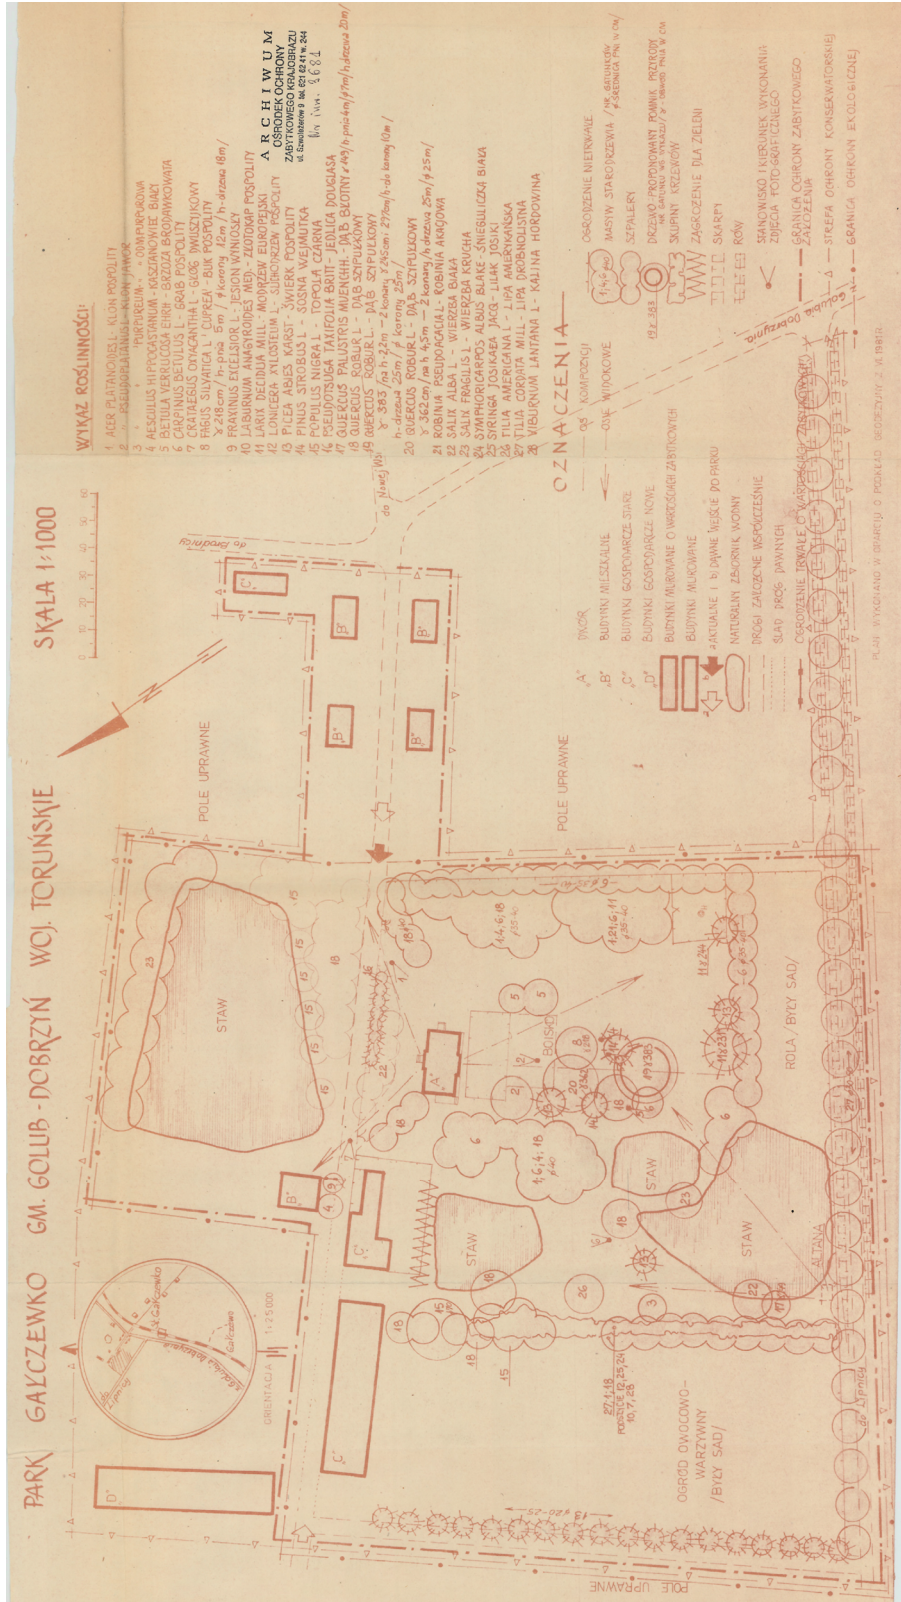 PARK GAŁCZEWKO GM. GOLUB-DOBRZYŃ WOJ. TORUŃSKIE SKALA 1:1000
0 10 20 30 40 50 60
WYKAZ ROŚLINNOŚCI:
1 ACER PLATANOIDES L - KLON POSPOLITY
2 " PSEUDOPLATANUS L - KLON JAWOR
3 " " "PURPUREUM" - ODM. PURPUROWA
4 AESCULUS HIPPOCASTANUM - KASZTANOWIEC BIAŁY
5 BETULA VERRUCOSA EHRH - BRZOZA BRODAWKOWATA
6 CARPINUS BETULUS L - GRAB POSPOLITY
7 CRATAEGUS OXYACANTHA L - GŁÓG DWUSZYJKOWY
8 FAGUS SILVATICA L "CUPREA" - BUK POSPOLITY
γ 218 cm / h-pnia 5m / φ korony 12m / h-drzewa 18m /
9 FRAXINUS EXCELSIOR L - JESION WYNIOSŁY
10 LABURNUM ANAGYROIDES MED - ZŁOTOKAP POSPOLITY
11 LARIX DECIDUA MILL - MODRZEW EUROPEJSKI
12 LONICERA XYLOSTEUM L - SUCHODRZEW POSPOLITY
13 PICEA ABIES KARST - ŚWIERK POSPOLITY
14 PINUS STROBUS L - SOSNA WEJMUTKA
15 POPULUS NIGRA L - TOPOLA CZARNA
16 PSEUDOTSUGA TAXIFOLIA BRITT - JEDLICA DOUGLASA
17 QUERCUS PALUSTRIS MUENCHH. - DĄB BŁOTNY γ 149 / h-pnia 4m / φ 7m / h drzewa 20m /
18 QUERCUS ROBUR L - DĄB SZYPUŁKOWY
19 QUERCUS ROBUR L. - DĄB SZYPUŁKOWY
γ 383 / na h-2,2m - 2 konary γ 245cm i 270cm / h-do korony 10m /
h-drzewa 25m / φ korony 25m /
20 QUERCUS ROBUR L - DĄB SZYPUŁKOWY
γ 362 cm / na h 4,5m - 2 konary / h drzewa 25m / φ 25m /
21 ROBINIA PSEUDOACACIA L - ROBINIA AKACJOWA
22 SALIX ALBA L - WIERZBA BIAŁA
23 SALIX FRAGILIS L - WIERZBA KRUCHA
24 SYMPHORICARPOS ALBUS BLAKE - ŚNIEGULICZKA BIAŁA
25 SYRINGA JOSIKAEA JACQ - LILAK JOSIKI
26 TILIA AMERICANA L - LIPA AMERYKAŃSKA
27 TILIA CORDATA MILL - LIPA DROBNOLISTNA
28 VIBURNUM LANTANA L - KALINA HORDOWINA
ARCHIWUM
OŚRODEK OCHRONY
ZABYTKOWEGO KRAJOBRAZU
ul. Szwoleżerów 9 tel. 621 62 41 w. 244
Nr inw. 2681
OZNACZENIA
"A" DWÓR
"B" BUDYNKI MIESZKALNE
"C" BUDYNKI GOSPODARCZE STARE
"D" BUDYNKI GOSPODARCZE NOWE
BUDYNKI MUROWANE O WARTOŚCIACH ZABYTKOWYCH
BUDYNKI MUROWANE
a) AKTUALNE I b) DAWNE WEJŚCIE DO PARKU
NATURALNY ZBIORNIK WODNY
DROGI ZAŁOŻONE WSPÓŁCZEŚNIE
ŚLAD DRÓG DAWNYCH
OGRODZENIE TRWAŁE O WARTOŚCIACH ZABYTKOWYCH
OŚ KOMPOZYCJI
OSIE WIDOKOWE
OGRODZENIE NIETRWAŁE
MASYW STARODRZEWIA / NR. GATUNKÓW φ-ŚREDNICA PNI W CM /
SZPALERY
19 γ 383 DRZEWO-PROPONOWANY POMNIK PRZYRODY
NR GATUNKU WG. WYKAZU / γ - OBWÓD PNIA W CM
SKUPINY KRZEWÓW
ZAGROŻENIE DLA ZIELENI
SKARPY
RÓW
STANOWISKO I KIERUNEK WYKONANIA
ZDJĘCIA FOTOGRAFICZNEGO
GRANICA OCHRONY ZABYTKOWEGO
ZAŁOŻENIA
STREFA OCHRONY KONSERWATORSKIEJ
GRANICA OCHRONY EKOLOGICZNEJ
PLAN WYKONANO W OPARCIU O PODKŁAD GEODEZYJNY Z VI. 1981 r.
N
do Brodnicy
do Nowej Wsi
Golubia Dobrzynia
POLE UPRAWNE
POLE UPRAWNE
POLE UPRAWNE
ORIENTACJA 1:25000
do Lipnicy
Gałczewko
STAW
STAW
STAW
STAW
BOISKO
ALTANA
ROLA /BYŁY SAD/
OGRÓD OWOCOWO-
WARZYWNY
/BYŁY SAD/
27; 1; 18
PODSZYCIE 12, 25, 24
10, 7, 28
1; 4; 6; 18
φ 35-40
1; 21; 6; 11
φ 35-40
1; 6; 4; 18
φ 40
11 γ 244
11 γ 231
19 γ 383
do Lipnicy